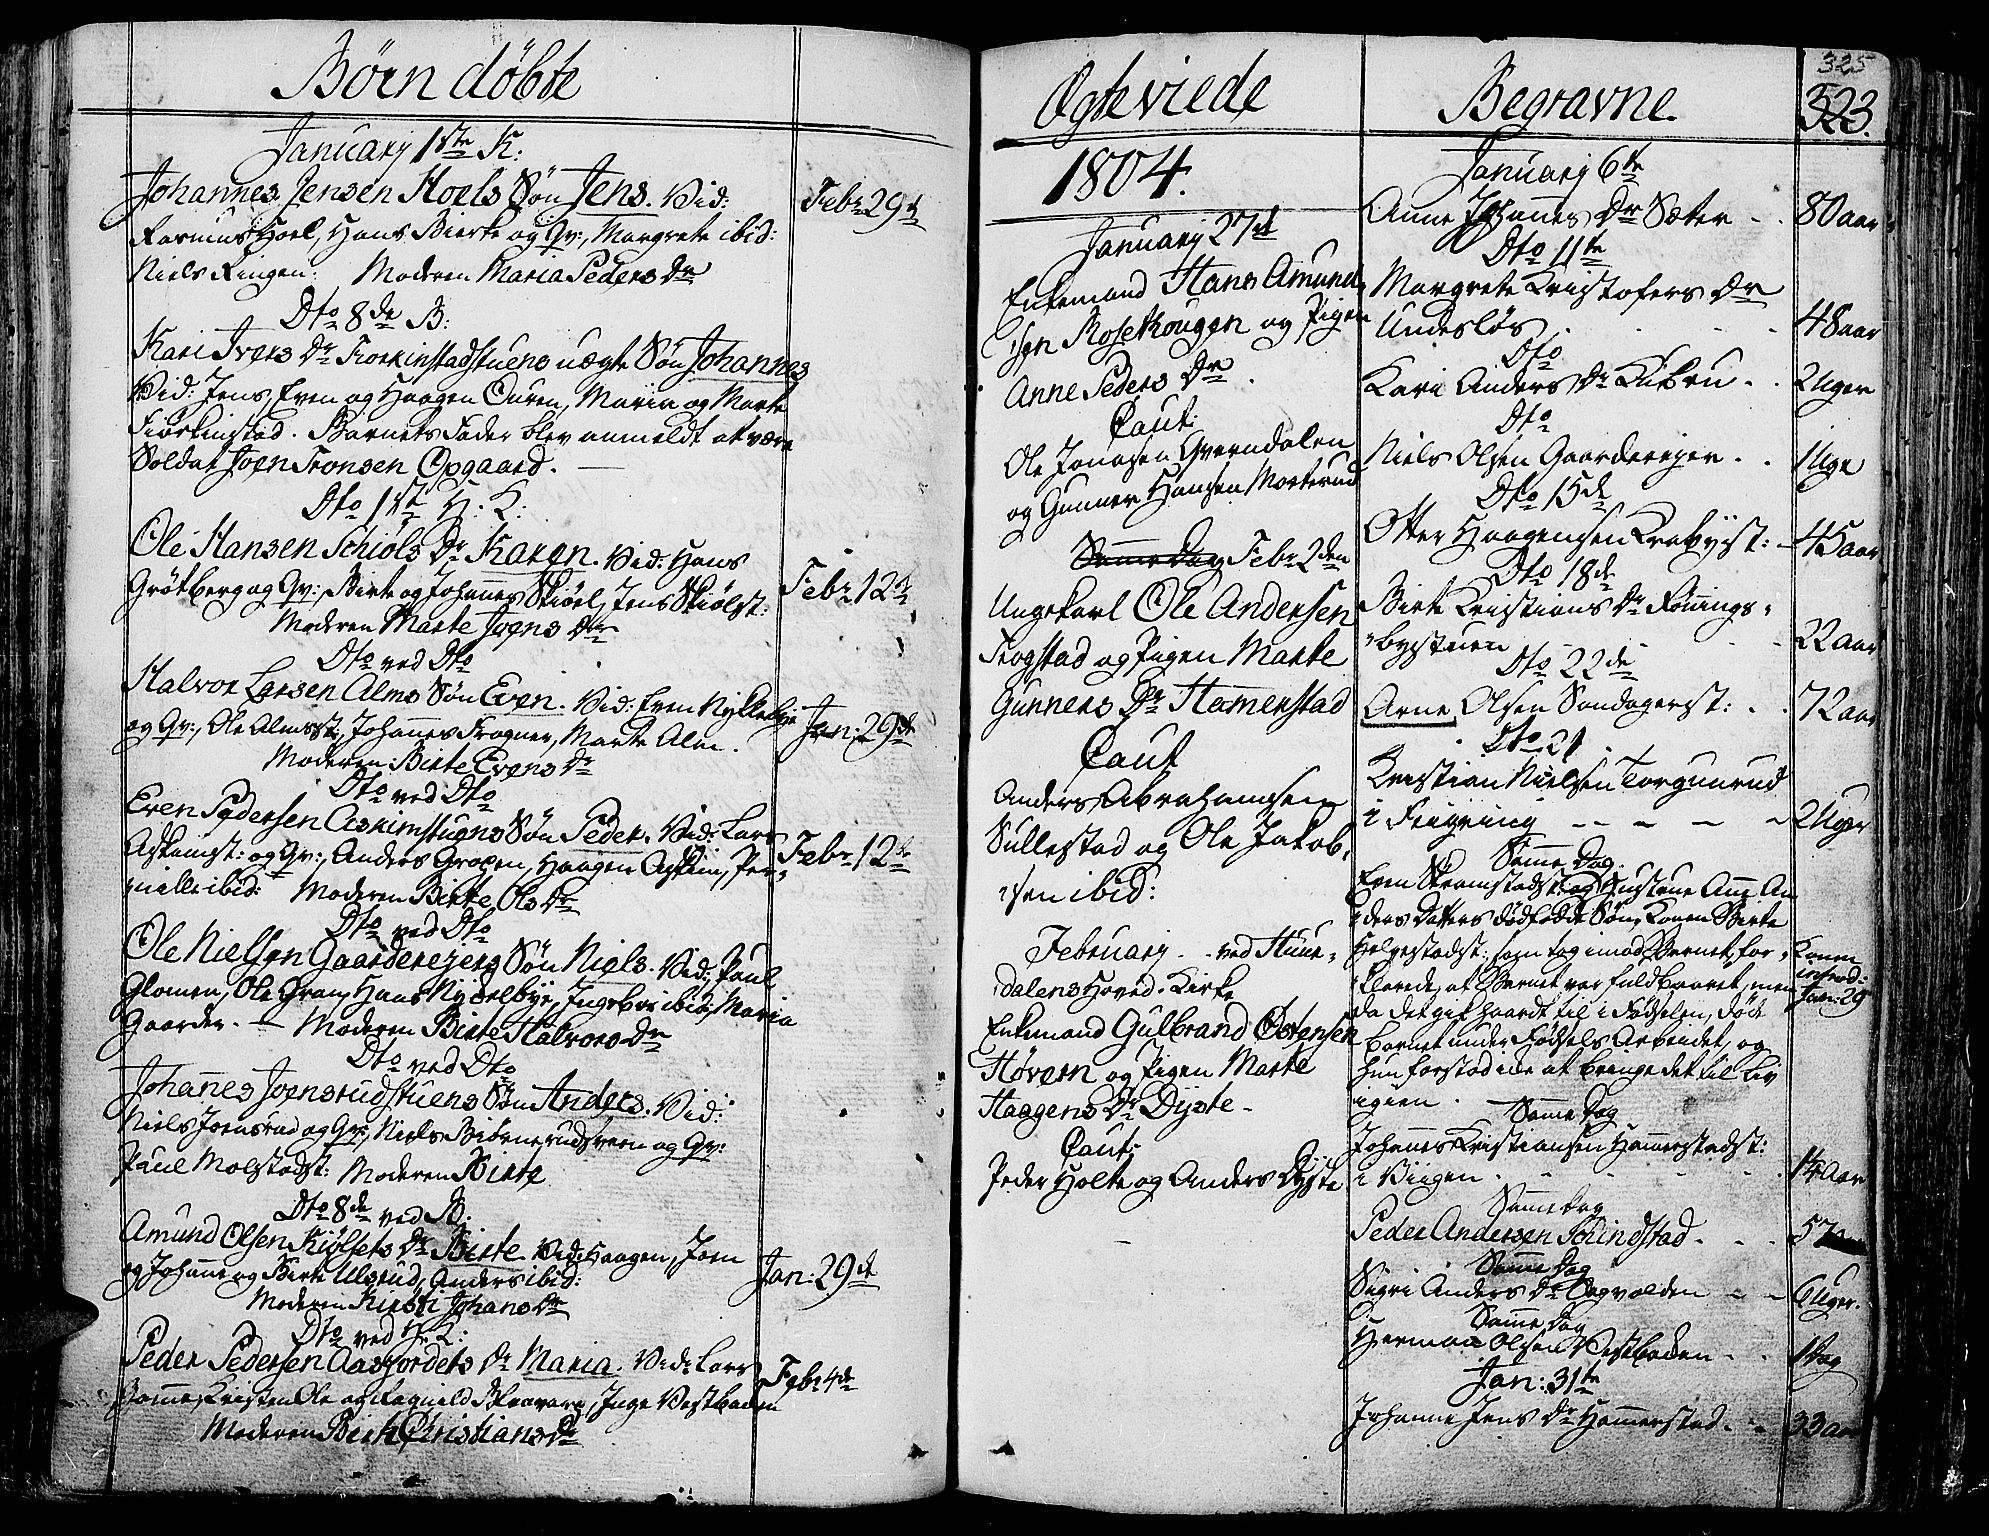 Børn døbte
January 1ste K:
Johannes Jensen Hoels Søn Jens. Vid: Febr. 29de
Rasmus Hoel, Hans Bierke og Qv:, Margrete ibid:
Niels Ringen: Moderen Maria Peders Dr
Dto 8de B:
Kari Ivers Dr Fiorkinstadstuens uægte Søn Johannes
Vid: Jens, Even og Haagen Ouren, Maria og Marte
Fiorkinstad. Barnets Fader blev anmeldt at være
Soldat Joen Tronsen Opgaard.
Dto 1st H. K:
Ole Hansen Schiøls Dr Karen. Vid: Hans
Grøtberg og Qv:, Birte og Johannes Skiøel, Jens Skiølst: Febr. 12de
Moderen Marte Joens Dr
Dto ved Dto
Halvor Larsen Alms Søn Even. Vid: Even Nykkelbye
og Qv:, Ole Almsst:, Johannes Frogner, Marte Alm. Jan: 29de
Moderen: Birte Evens Dr
Dto ved Dto
Even Pedersen Askimstuens Søn Peder. Vid: Lars
Askimst: og Qv:, Anders Groen, Haagen Askim, Per- Febr. 12de
nille ibid: Moderen Birte Ols Dr
Dto ved Dto
Ole Nielsen Gaardereiers Søn Niels. Vid: Paul
Glomen, Ole Gran, Hans Nykelbye, Ingebor ibid:, Maria
Gaarder. — Moderen Birte Halvors Dr
Dto ved Dto
Johannes Joensrudstuens Søn Anders. Vid:
Niels Joensrud og Qv:, Niels Biørnerudsveen og Qv:
Paul Molstadst: Moderen Birte
Dto 8de ved B.
Amund Olsen Kiølsets Dr Birte. Vid: Haagen, Joen
og Johanne og Birte Ulsrud, Anders ibid: Jan: 29de
Moderen Kirsti Johans Dr
Dto ved H. K:
Peder Pedersen Aasjordets Dr Maria. Vid: Lars Febr. 4de
Kristen Ole og Ragnild Vestbaden
Moderen Birte Christians Dr
Ægteviede
1804.
January 27de
Enkemand Hans Amund-
sen Rosekougen og Pigen
Anne Peders Dr.
Caut:
Ole Jonasen Qverndalen
og Gunner Hansen Morterud
Samme Dag Febr. 2den
Ungekarl Ole Andersen
Frogstad og Pigen Marte
Gunners Dr Hamerstad
Caut
Anders Abrahamsen
Sullestad og Ole Jakob-
sen ibid:
February - - ved Hure-
dalens Hoved-Kirke
Enkemand Gulbrand Østensen
Høvern og Pigen Marte
Haagens Dr Dyste -
Caut:
Peder Holte og Anders Dyste
Begravne.
325
523.
January 6te
Anne Johannes Dr Sæter - . 80 aar
Dto 11te
Margrete Kristofers Dr
Undesløs . . - - 48 aar
Dto
Kari Anders Dr Kibru . . 2 Uger
Dto
Niels Olsen Gaardereier . . 1 Uge
Dto 15de
Otter Haagensen Krabyst: - 45 aar
Dto 18de
Birte Kristians Dr Rønnings-
bystuen - - - 22 aar
Dto 22de
Arne Olsen Sandagerst: . . 72 aar
Dto 21
Kristian Nielsen Torgunrud
i Feiring - - - - 2 Uger
Samme Dag.
Even Stramstadst: og Hustrue Anne An-
ders Datters dødfødde Søn, Konen Birte
Helgestadst: som tog imod Barnet, for- Konen
klarede, at Barnet var fuldbaaret, men introd:
da det gik haardt til i Fødselen, døde Jan: 29
Barnet under Fødsels Arbeidet, og
hun forstod ikke at bringe det til Liv
igien.
Samme Dag
Johannes Kristiansen Hammerstadst:
i Viigen . - - - 14 Aar
Samme Dag
Peder Andersen Schindstad - - . 57
Samme Dag
Sigri Anders Dr Dagvolden - - 6 Uger.
Samme Dag
Herman Olsen Vestbaden - . 1 Dag
Jan: 31te
Johanne Jens Dr Hammerstad - - 33 aar